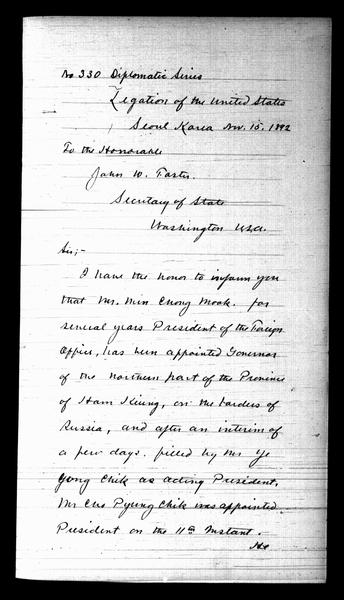 No. 330 Diplomatic Series
Legation of the United States
Seoul Korea Nov. 15. 1892
To the Honorable
John W. Foster.
Secretary of State
Washington U.S.A.
Sir;-
I have the honor to inform you
that Mr. Min Chong Mook. for
several years President of the Foreign
Office, has been appointed Governor
of the northern part of the Province
of Ham Kiung, on the borders of
Russia, and after an interim of
a few days. filled by Mr Ye
Yong Chik as acting President,
Mr Cho Pyung Chik was appointed
President on the 11th Instant.
He